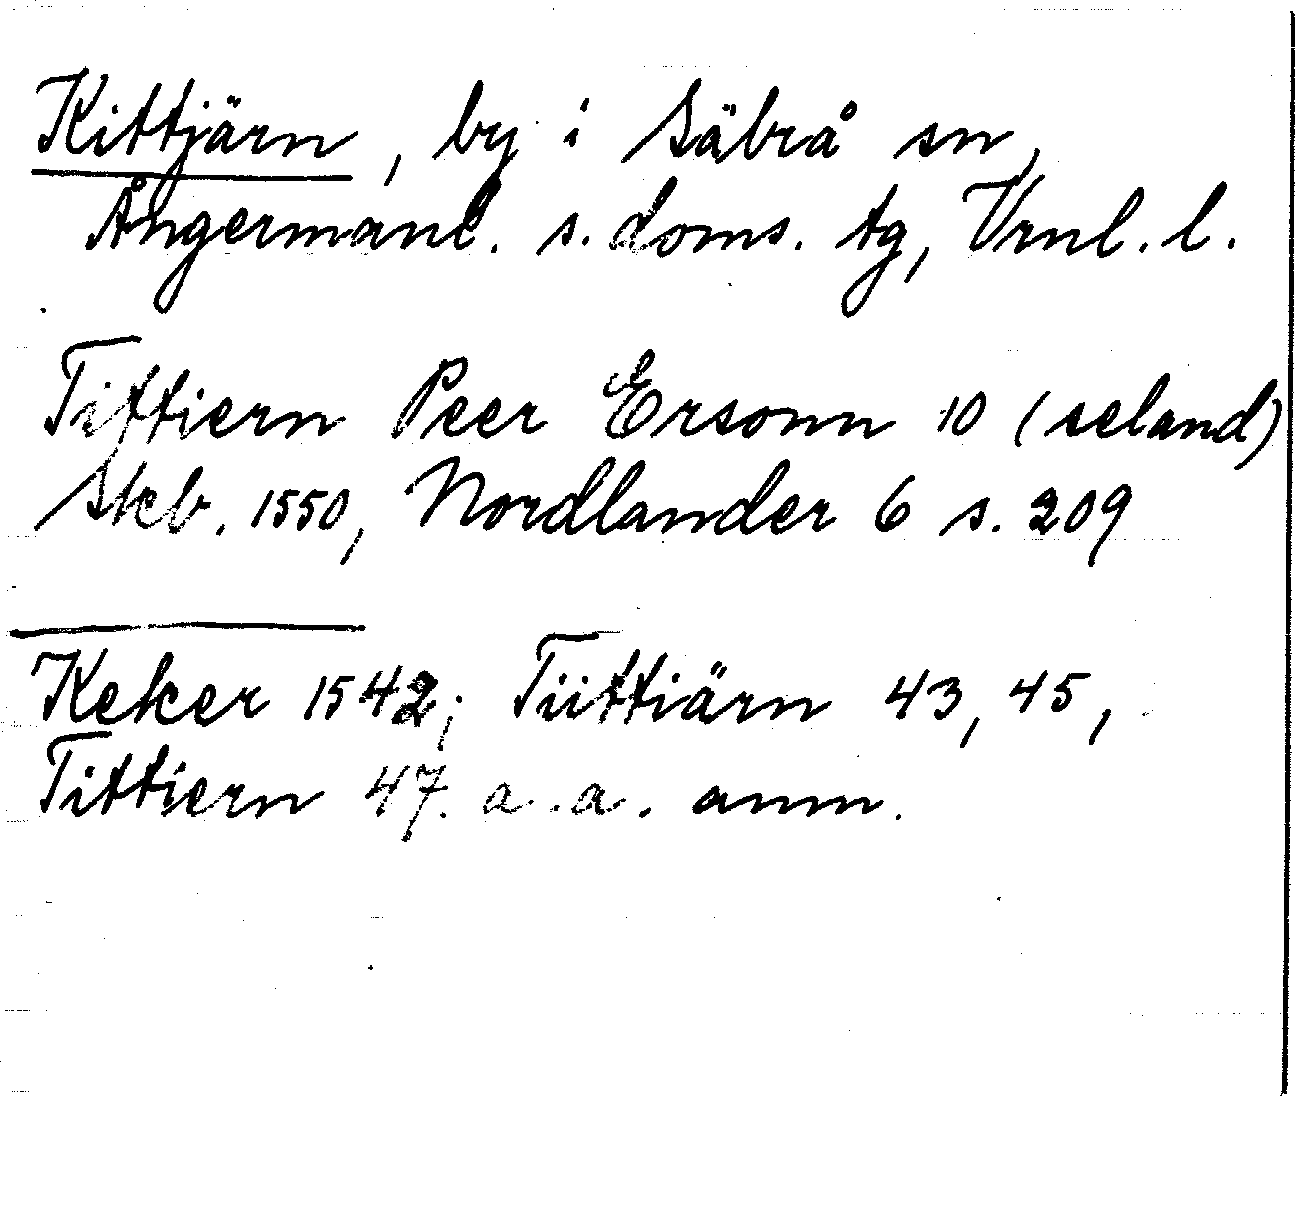 Kittjärn, by i Säbrå sn,
Ångermanl. s. doms. tg, Vrnl. l.
Tittiern Peer Ersonn 10 (seland)
Skb. 1550, Nordlander 6 s. 209
Keker 1542; Tiittiärn 43, 45,
Tittiern 47. a. a. anm.